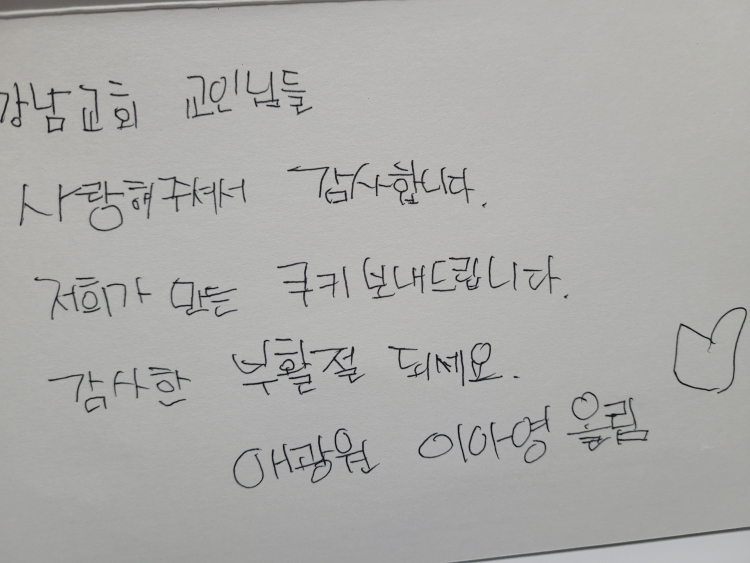 강남교회 교인님들
사랑해주셔서 감사합니다.
저희가 만든 쿠키 보내드립니다.
감사한 부활절 되세요.
애광원 이아영 올림